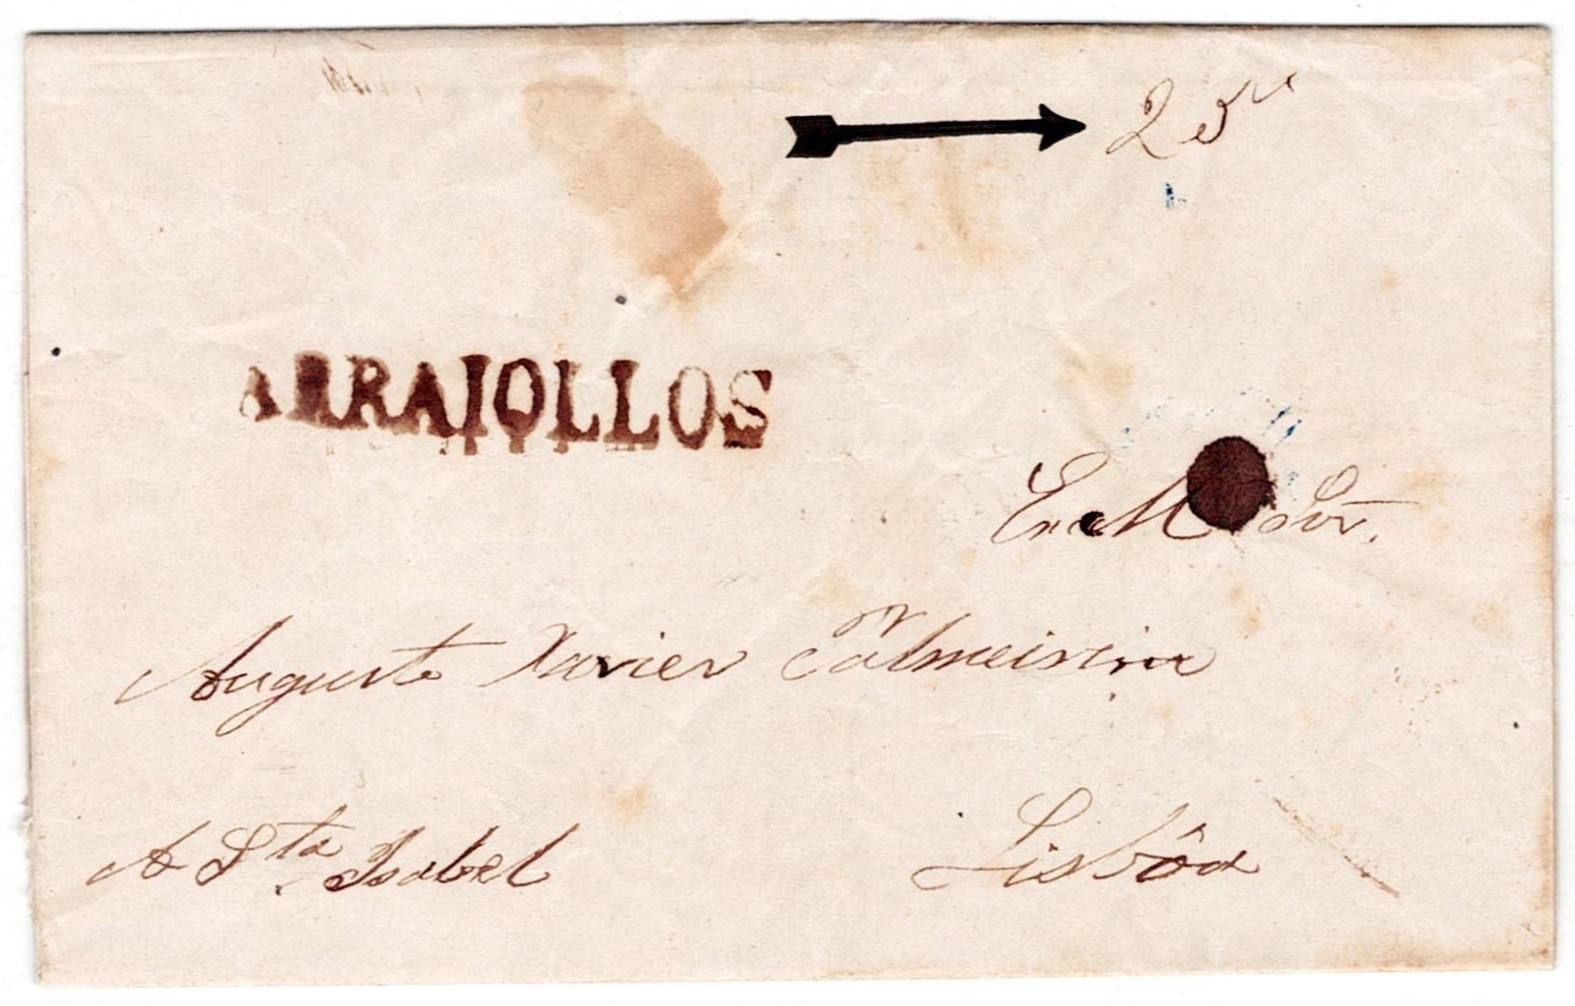 25
ARRAIOLLOS
Snr.
Augusto Xavier Palmeirim
A Sta Isabel
Lisbôa